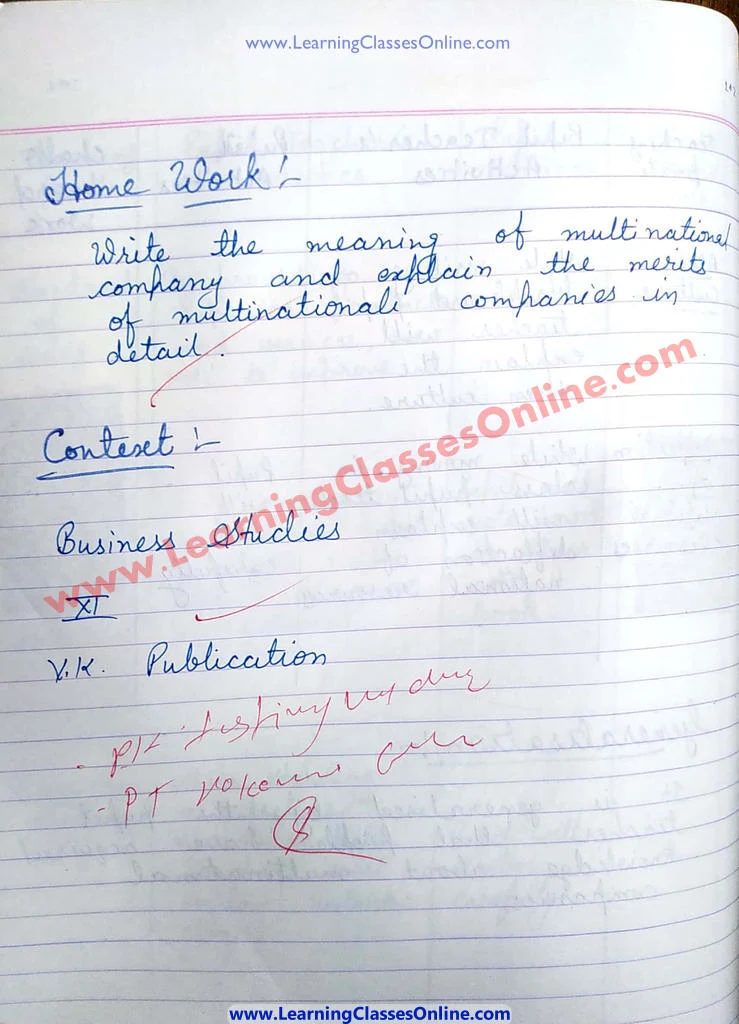 www.LearningClassesOnline.com
Home Work :-
Write the meaning of multinational
company and explain the merits
of multinationali companies in
detail.
www.LearningClassesOnline.com
Contexet :-
Business Studies
XI
V.K. Publication
PT
www.LearningClassesOnline.com